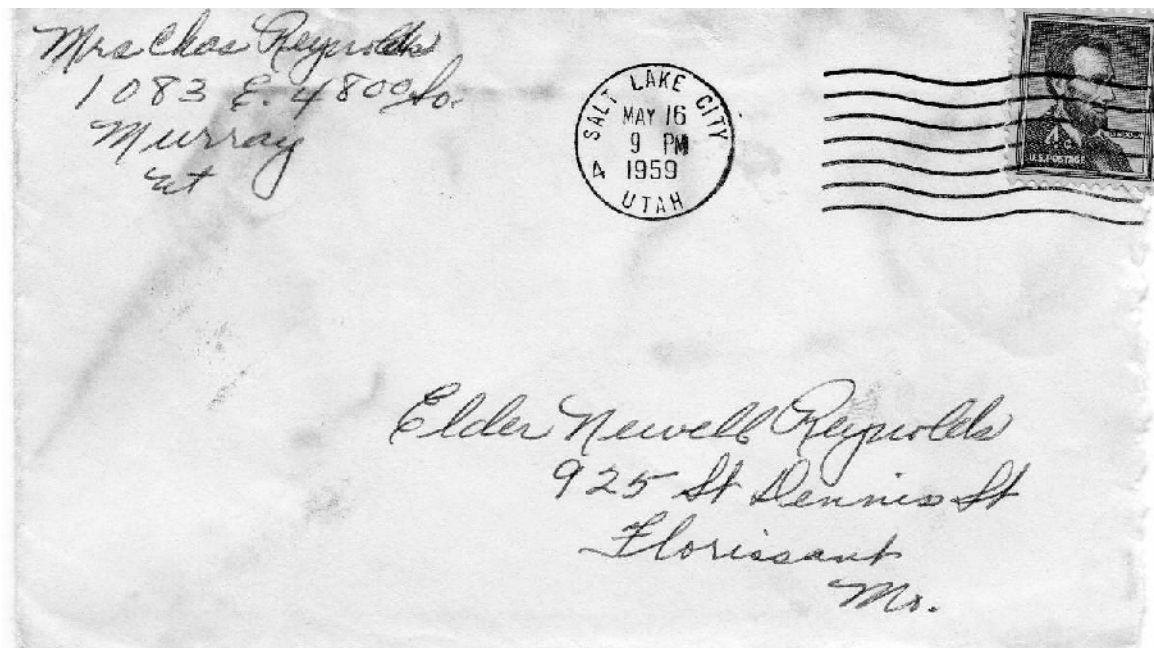 Mrs Chas Reynolds
1083 E. 4800 So.
Murray
Ut
SALT LAKE CITY
MAY 16
9 PM
1959
UTAH
4
4 c.
U.S. POSTAGE
Elder Newell Reynolds
925 St Dennis St
Florissant
Mo.